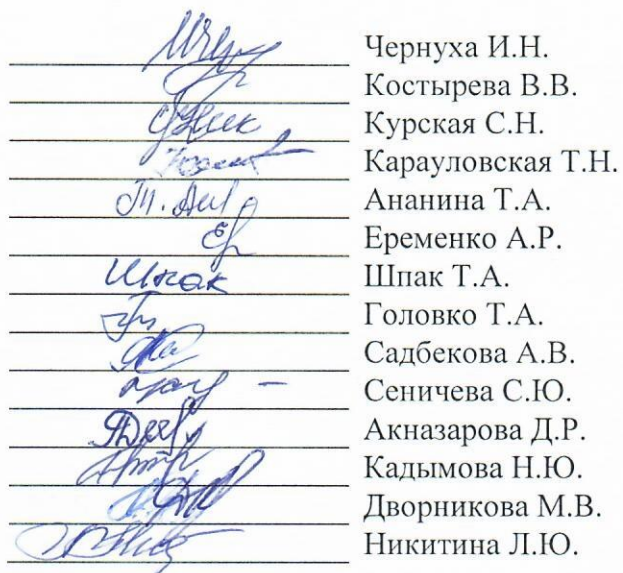 Чернуха И.Н.
Костырева В.В.
Курская С.Н.
Карауловская Т.Н.
Ананина Т.А.
Еременко А.Р.
Шпак Шпак Т.А.
Головко Т.А.
Садбекова А.В.
Сеничева С.Ю.
Акназарова Д.Р.
Кадымова Н.Ю.
Дворникова М.В.
Никитина Л.Ю.